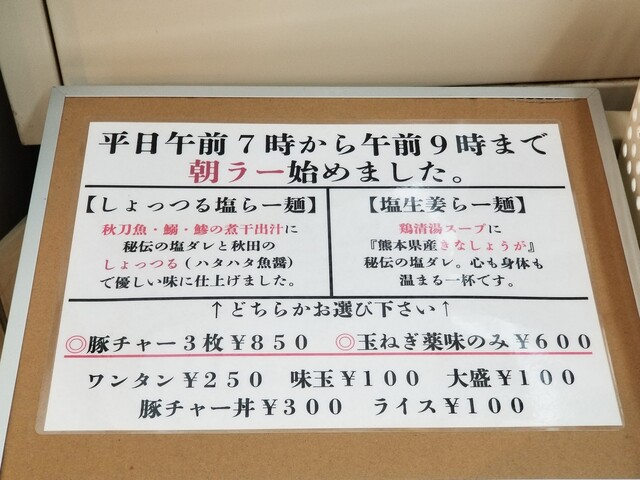 平日午前7時から午前9時まで
朝ラー始めました。
【しょっつる塩らー麺】
秋刀魚・鰯・鯵の煮干出汁に
秘伝の塩ダレと秋田の
しょっつる(ハタハタ魚醤)
で優しい味に仕上げました。
【塩生姜らー麺】
鶏清湯スープに
『熊本県産きなしょうが』
秘伝の塩ダレ。心も身体も
温まる一杯です。
↑どちらかお選び下さい↑
◎豚チャー3枚¥850 ◎玉ねぎ薬味のみ¥600
ワンタン¥250 味玉¥100 大盛¥100
豚チャー丼¥300 ライス¥100